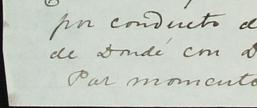 por conducto d
de Dondé con D
Par momento